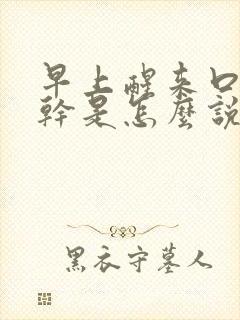 早上醒來口
幹是怎麼說
黑衣守墓人